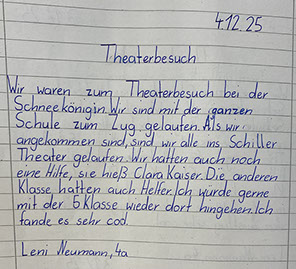 4.12.25
Theaterbesuch
Wir waren zum Theaterbesuch bei der
Schneekönigin. Wir sind mit der ganzen
Schule zum Zug gelaufen. Als wir
angekommen sind, sind wir alle ins Schiller
Theater gelaufen. Wir hatten auch noch
eine Hilfe, sie hieß Clara Kaiser. Die anderen
Klasse hatten auch Helfer. Ich wurde gerne
mit der 5 Klasse wieder dort hingehen. Ich
fande es sehr cod.
Leni Neumann, 4a